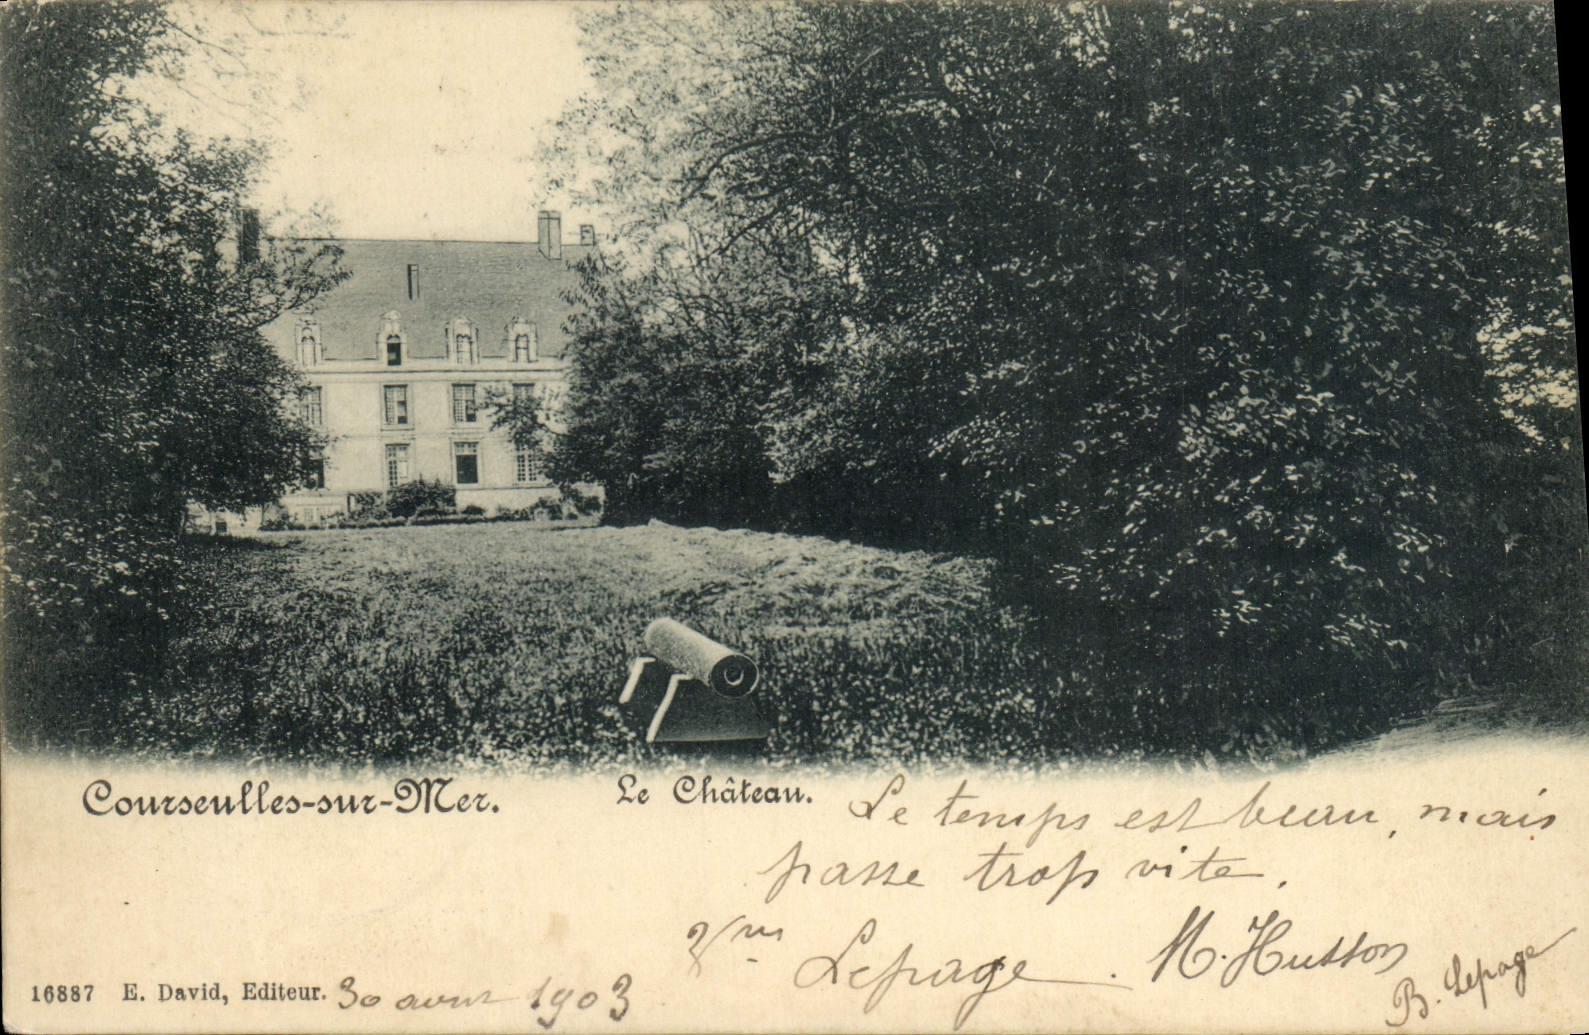 Courseulles-sur-Mer. Le Château.
Le temps est beau, mais
passe trop vite.
Lepage. M. Husson
B. Lepage
16887 E. David, Editeur. 30 aout 1903